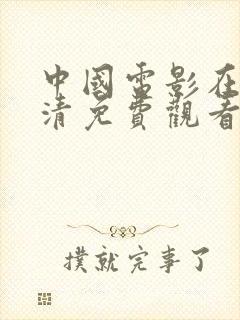 中國電影在
清免費觀看
撲就完事了